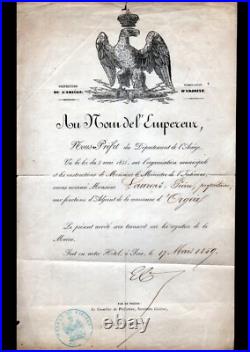 PRÉFECTURE
DE L'ARIÈGE.
Au Nom de l'Empereur,
Nous Préfet du Département de l'Ariège,
Vu la loi du 5 mai 1855, sur l'organisation municipale
et les instructions de Monsieur le Ministre de l'Intérieur,
avons nommé Monsieur Laurens, propriétaire,
aux fonctions d'Adjoint de la commune d'
Le présent arrêté sera transcrit sur les registres de la
Mairie.
Fait en notre Hôtel, à Foix, le 17 Mars 1859.
PAR LE PRÉFET:
Le Conseiller de Préfecture, Secrétaire Général,